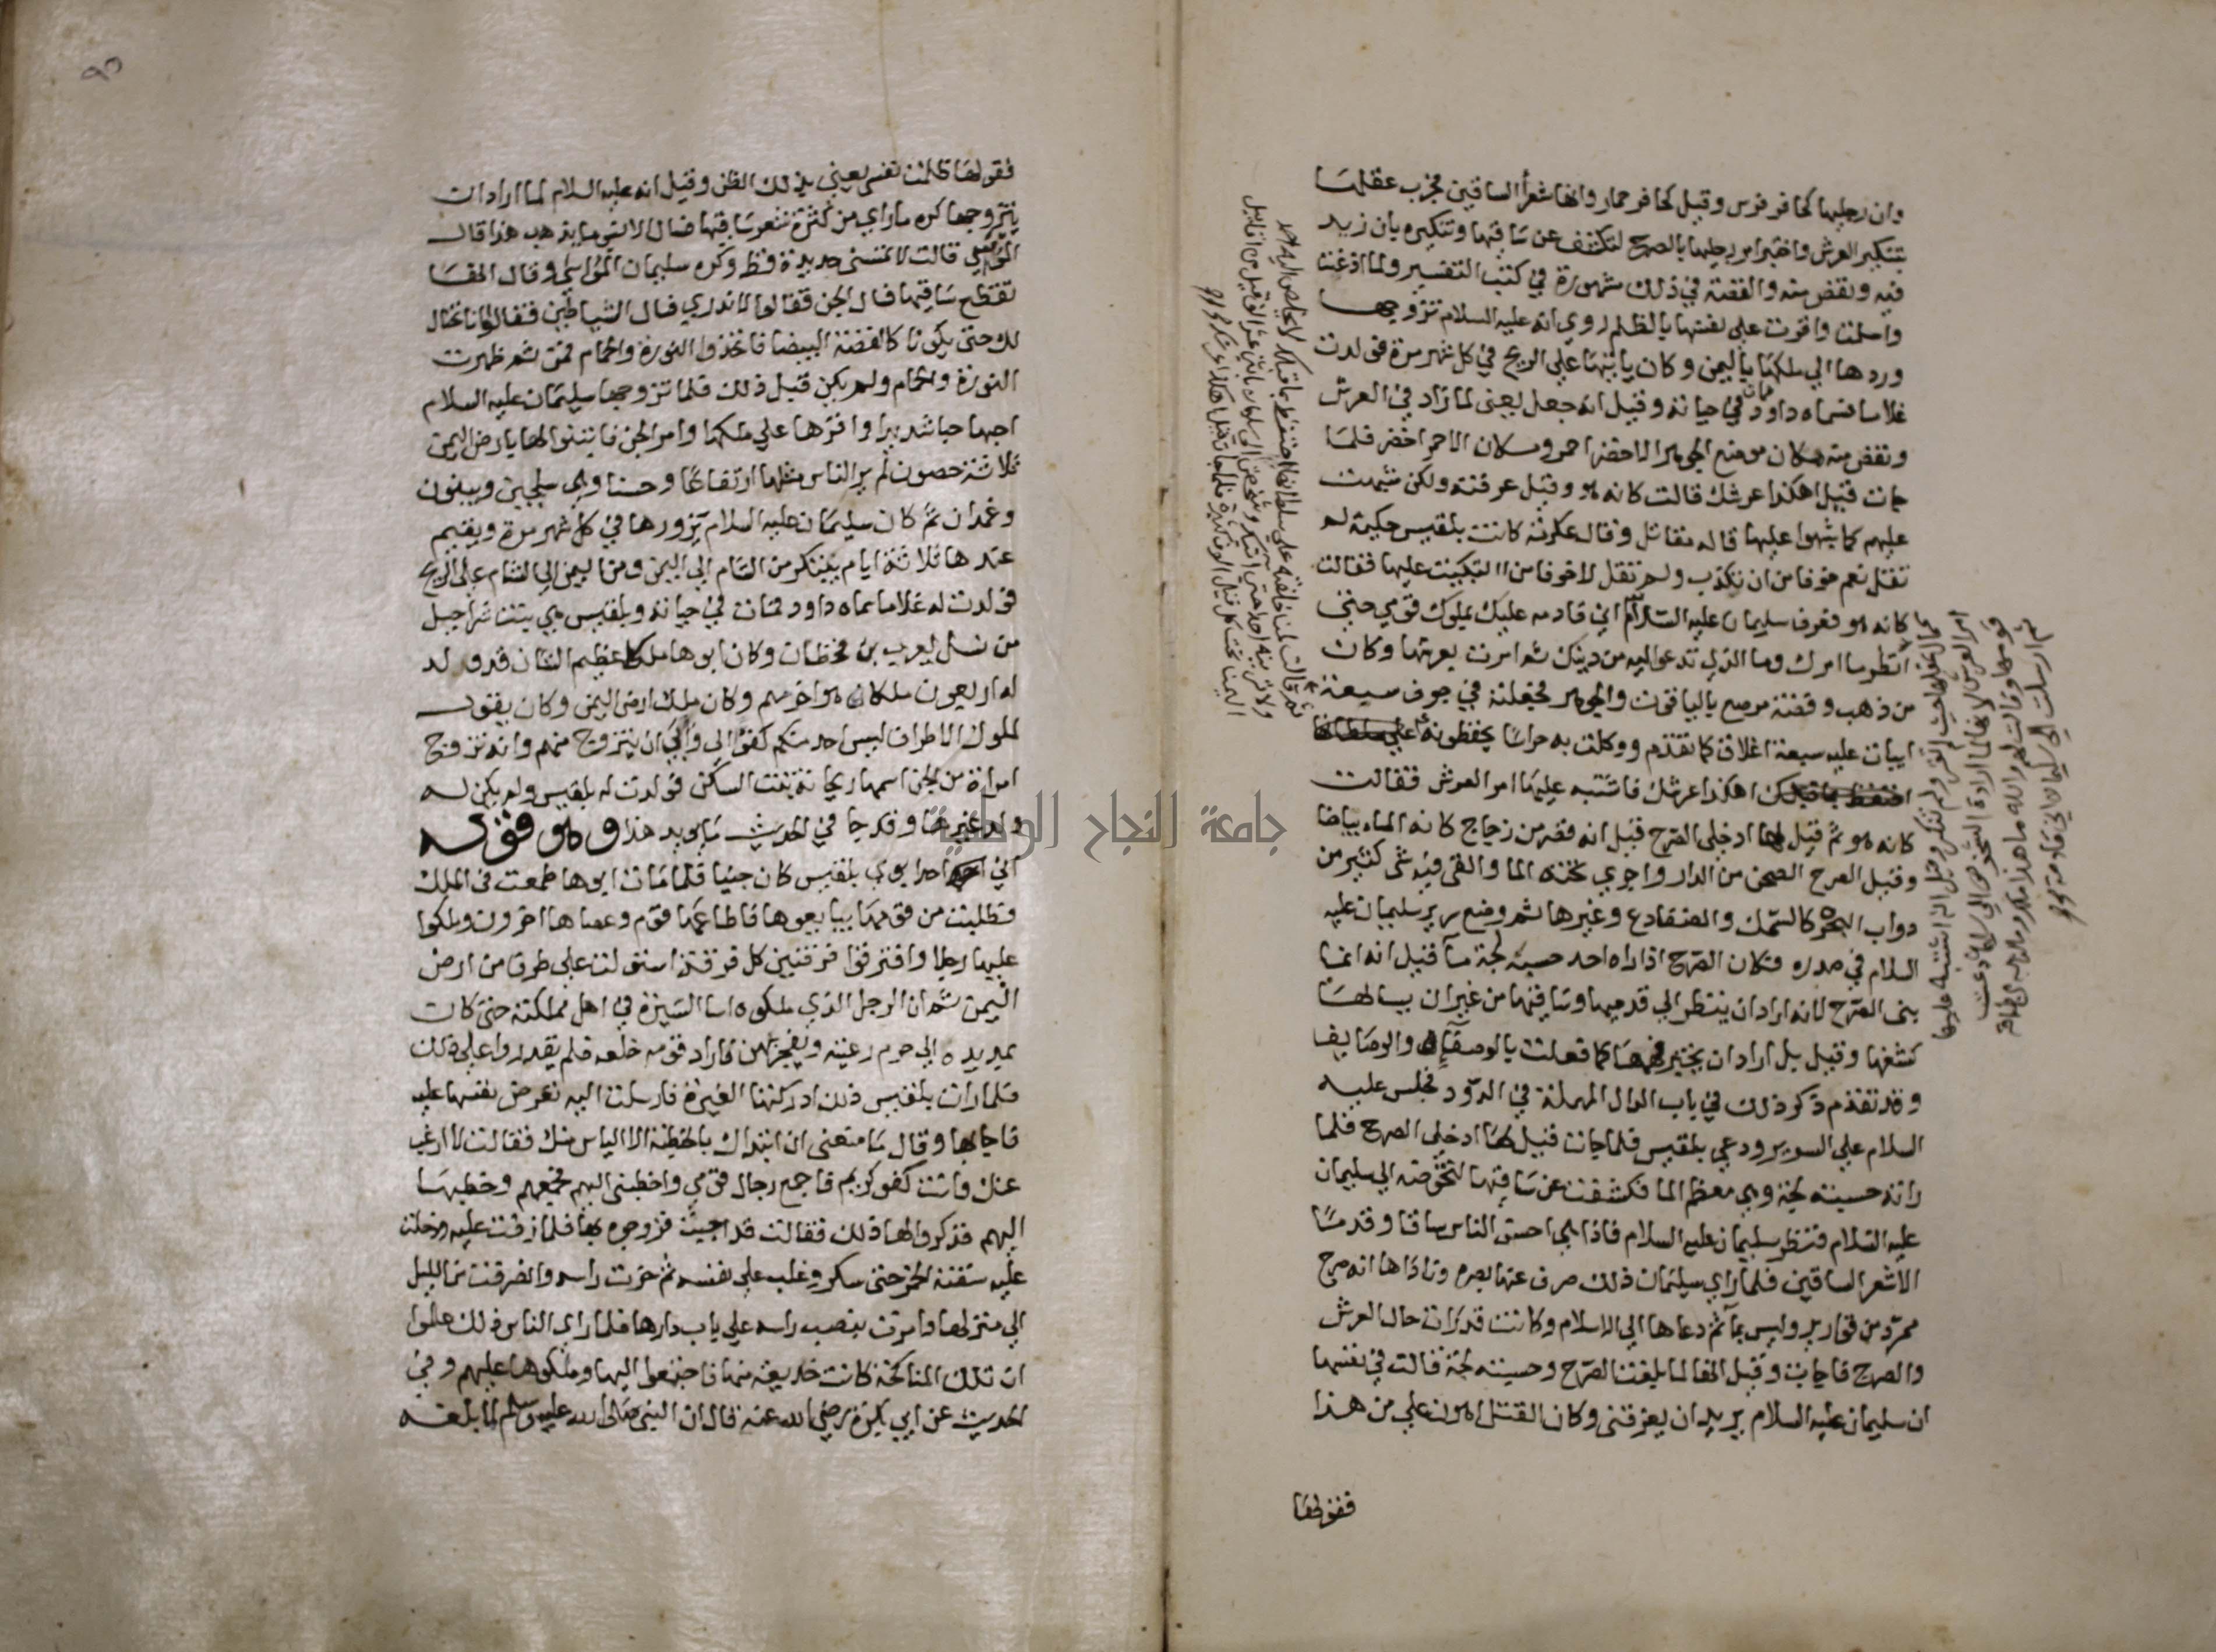 وان رجليها كحافر فرس وقيل كحافر حمار وانها شعرا الساقين فجرب عقلها
بتنكير العرش واختبر امر رجليها بالصرح لتكشف عن ساقيها وتنكيره بان زيد
فيه ونقص منه والقصة في ذلك مشهورة في كتب التفسير ولما اذعنت
واسلمت واقرت على نفسها بالظلم روي انه عليه السلام تزوجها
وردها الى ملكها باليمن وكان ياتيها على الريح في كل شهر مرة فولدت
غلاما فسماه داود فمات في حياته وقيل انه جعل يعني لما زاد في العرش
ونقص منه مكان موضع الجوهر الاخضر احمر ومكان الاحمر اخضر فلما
جات قيل اهكذا عرشك قالت كانه هو وقيل عرفته ولكن شبهت
عليهم كما شبهوا عليها قاله مقاتل وقال عكرمة كانت بلقيس حكيمة لم
تقل نعم خوفا من ان تكذب ولم تقل لا خوفا من التبكيت عليها فقالت
كانه هو فعرف سليمان عليه السلام اني قادمه عليك بملوك قومي حتى
انظر ما امرك وما الذي تدعو اليه من دينك ثم امرت بعرشها وكان
من ذهب وفضة مرصع بالياقوت والجوهر فجعلته في جوف سبعة
ابيات عليه سبعة اغلاق كما تقدم ووكلت به حراسا يحفظونه على سلطانها
احتفظ بما قبلك اهكذا عرشك فاشتبه عليها امر العرش فقالت
كانه هو ثم قيل لها ادخلي الصرح قيل انه قصر من زجاج كانه الماء بياضا
وقيل الصرح الصحن من الدار واجري تحته الما والقى فيه شى كثير من
دواب البحر كالسمك والضفادع وغيرها ثم وضع سرير سليمان عليه
السلام في صدره فكان الصرح اذا راه احد حسبه لجة مآ قيل انه انما
بنى الصرح لانه اراد ان ينظر الى قدميها وساقيها من غير ان يسالها
كشفها وقيل بل اراد ان يختبر فهمها كما فعلت بالوصفاء والوصايف
وقد تقدم ذكر ذلك في باب الدال المهملة في الدود فجلس عليه
السلام على السرير ودعى بلقيس فلما جات قيل لها ادخلي الصرح فلما
راته حسبته لجة وهي معظم الما فكشفت عن ساقيها لتخوضه الى سليمان
عليه السلام فنظر سليمان عليه السلام فاذا هي احسن الناس ساقا وقدما
الا شعر الساقين فلما راى سليمان ذلك صرف عنها بصره وناداها انه صرح
ممرد من قوارير وليس بمآ ثم دعاها الى الاسلام وكانت قد رات حال العرش
والصرح فاجابت وقيل انها لما بلغت الصرح وحسبته لجة قالت في نفسها
ان سليمان عليه السلام يريد ان يغرقني وكان القتل اهون علي من هذا
فقولها
ثم قالت لمن خلفته على سلطانها احتفظ بما قبلك لا يخلص اليه احد
ثم ارسلت الى سليمان اني قادمه
فقولها ظلمت نفسي يعني بذلك الظن وقيل انه عليه السلام لما اراد ان
يتزوجها كره ما راي من كثرة شعر ساقيها فسال الانس ما يذهب هذا قال
الموسى قالت لا تمسني حديدة قط وكره سليمان المواسي وقال انها
تقطع ساقيها فسال الجن فقالوا لا ندري فسال الشياطين فقالوا انا نحتال
لك حتى يكونا كالفضة البيضا فاتخذوا النورة والحمام فمن ثم ظهرت
النورة والحمام ولم يكن قبل ذلك فلما تزوجها سليمان عليه السلام
احبها حبا شديدا واقرها على ملكها وامر الجن فابتنوا لها بارض اليمن
ثلاثة حصون لم ير الناس مثلها ارتفاعا وحسنا وهي سلحين وبينون
وغمدان ثم كان سليمان عليه السلام يزورها في كل شهر مرة ويقيم
عندها ثلاثة ايام يبتكر من الشام الى اليمن ومن اليمن الى الشام على الريح
فولدت له غلاما سماه داود فمات في حياته وبلقيس هي بنت شراحيل
من نسل يعرب بن قحطان وكان ابوها ملكا عظيم الشان قد ولد
له اربعون ملكا هو اخرهم وكان ملك ارض اليمن وكان يقول
لملوك الاطراف ليس احد منكم كفوا لي وابى ان يتزوج منهم وانه تزوج
امراة من الجن اسمها ريحانة بنت السكن فولدت له بلقيس ولم يكن له
ولد غيرها وقد جا في الحديث ما يويد هذا وهو قوله
ان احد ابوي بلقيس كان جنيا فلما مات ابوها طمعت في الملك
فطلبت من قومها ان يبايعوها فاطاعها قوم وعصاها اخرون وملكوا
عليها رجلا وافترقوا فرقتين كل فرقة استولت على طرف من ارض
اليمن ثم ان الرجل الذي ملكوه اسا السيرة في اهل مملكته حتى كان
يمد يده الى حرم رعيته ويفجر بهن فاراد قومه خلعه فلم يقدروا على ذلك
فلما رات بلقيس ذلك ادركتها الغيرة فارسلت اليه تعرض نفسها عليه
فاجابها وقال ما منعني ان ابتداك بالخطبة الا الياس منك فقالت لا ارغب
عنك فانت كفو كريم فاجمع رجال قومي واخطبني اليهم فجمعهم وخطبها
اليهم فذكروا لها ذلك فقالت قد اجبت فزوجوه بها فلما زفت عليه ودخلت
عليه سقته الخمر حتى سكر وغلب على نفسه ثم حزت راسه وانصرفت من الليل
الى منزلها وامرت بنصب راسه على باب دارها فلما راى الناس ذلك علموا
ان تلك المناكحة كانت خديعة منها فاجتمعوا اليها وملكوها عليهم وفي
الحديث عن ابي بكرة رضي الله عنه قال ان النبي صلى الله عليه وسلم لما بلغه
جامعة النجاح الوطنية